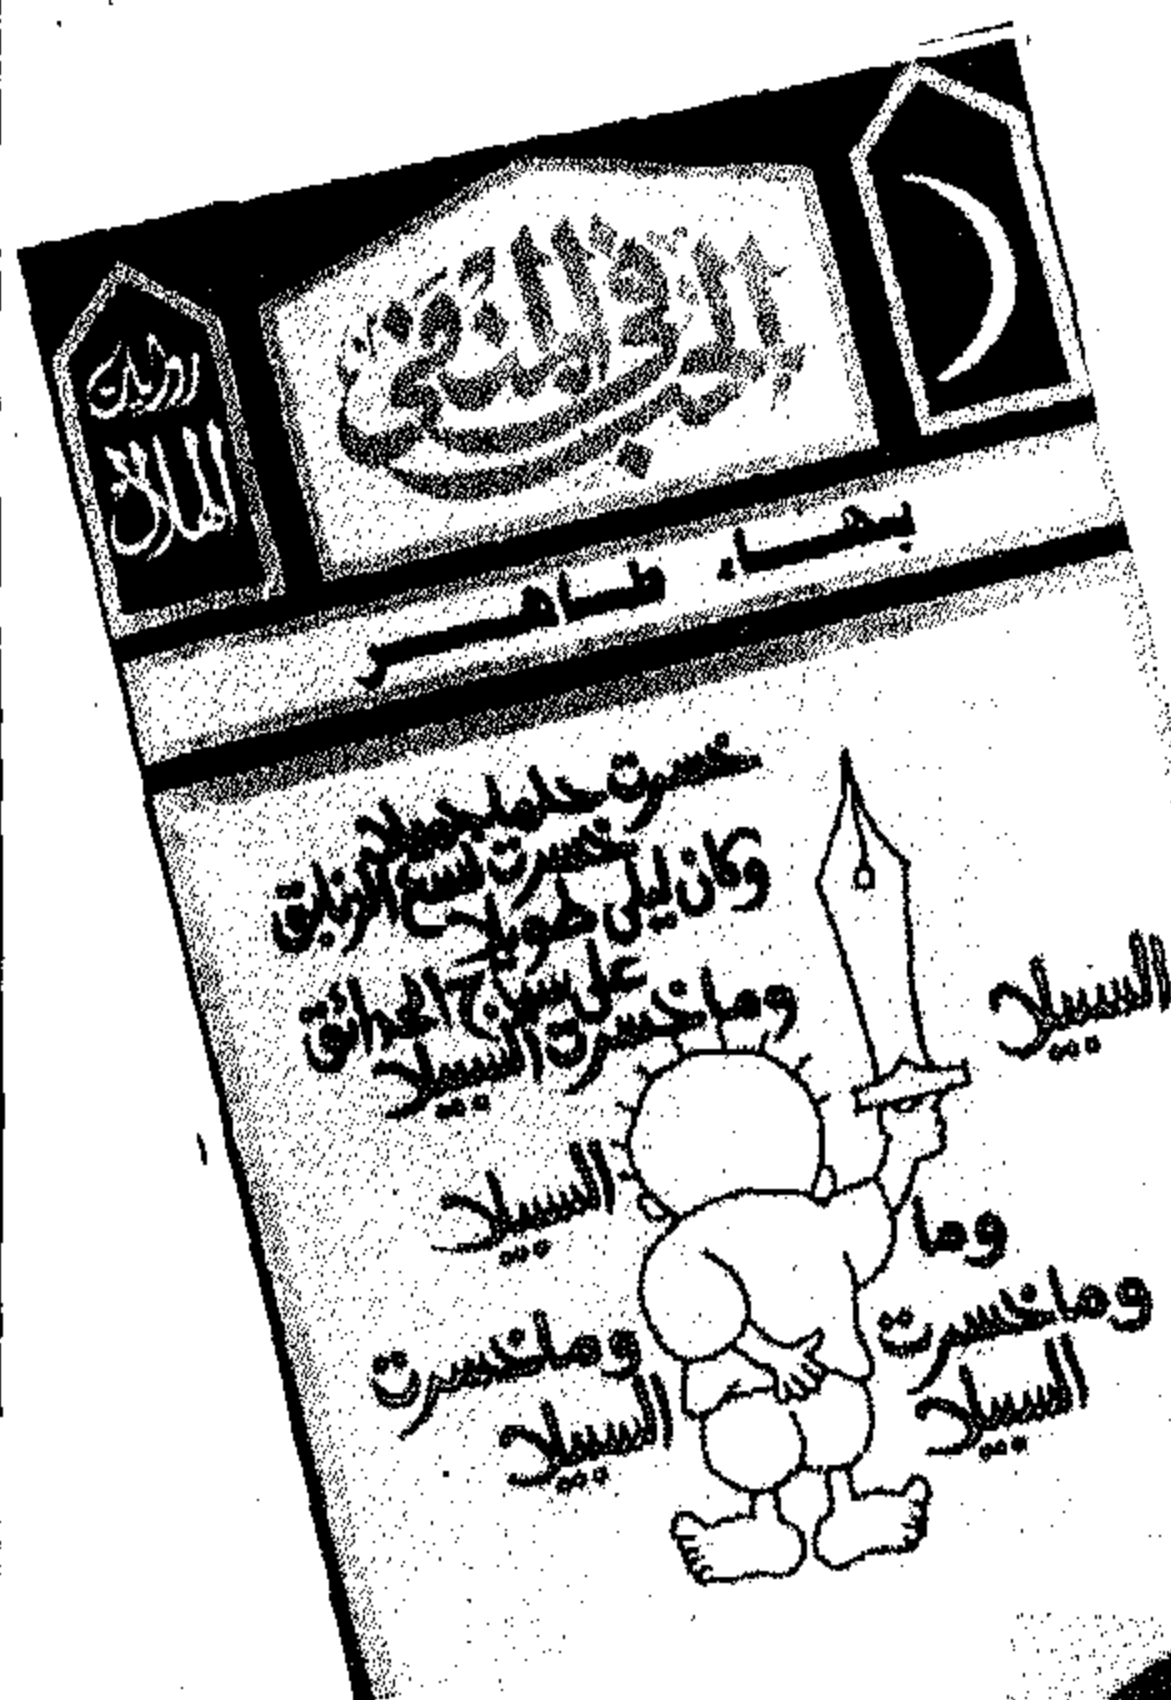 الحب في المنفى
روايات
الهلال
بهاء طاهر
خسرت حلما جميلا
خسرت لسع الزنابق
وكان ليلى طويلا
على سياج الحدائق
وما خسرت السبيلا
السبيلا
السبيلا
وما
وما خسرت
السبيلا
وما خسرت
السبيلا